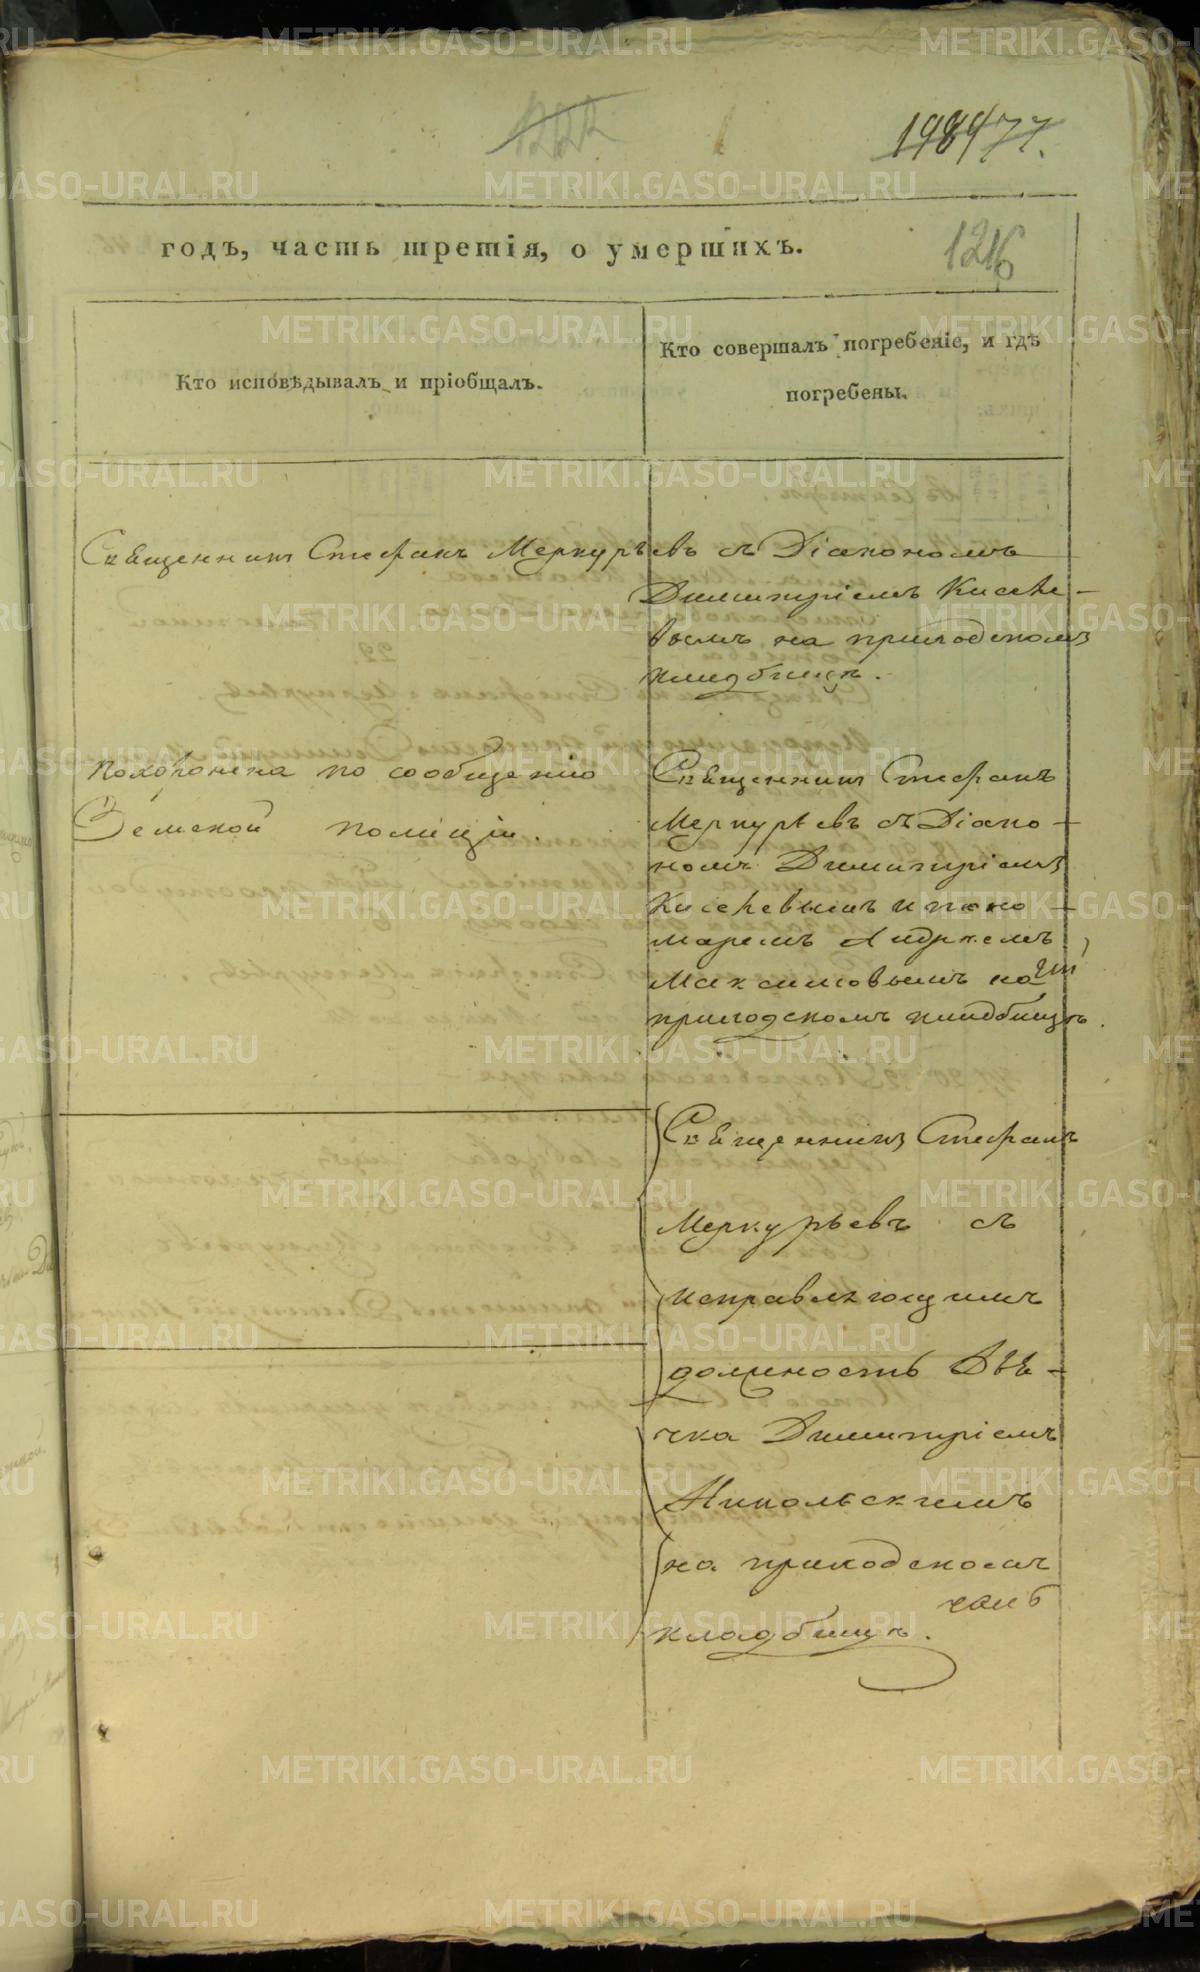 годъ, часть третія, о умершихъ.
1216
Кто исповѣдывалъ и пріобщалъ.
Кто совершалъ погребеніе, и гдѣ
погребены.
Священникъ Стефанъ Меркурьевъ съ Діакономъ
Димитріемъ Киселе-
вымъ на приходскомъ
кладбищѣ.
похоронена по сообщенію
Земской полиціи.
Священникъ Стефанъ
Меркурьевъ съ Діако-
номъ Димитріемъ
Киселевымъ и поно-
маремъ Андреемъ
Максимовымъ на
приходскомъ кладбищѣ.
Священникъ Стефанъ
Меркурьевъ съ
исправляющимъ
должность Дья-
чка Димитріемъ
Никольскимъ
на приходскомъ
кладбищѣ.
METRIKI.GASO-URAL.RU